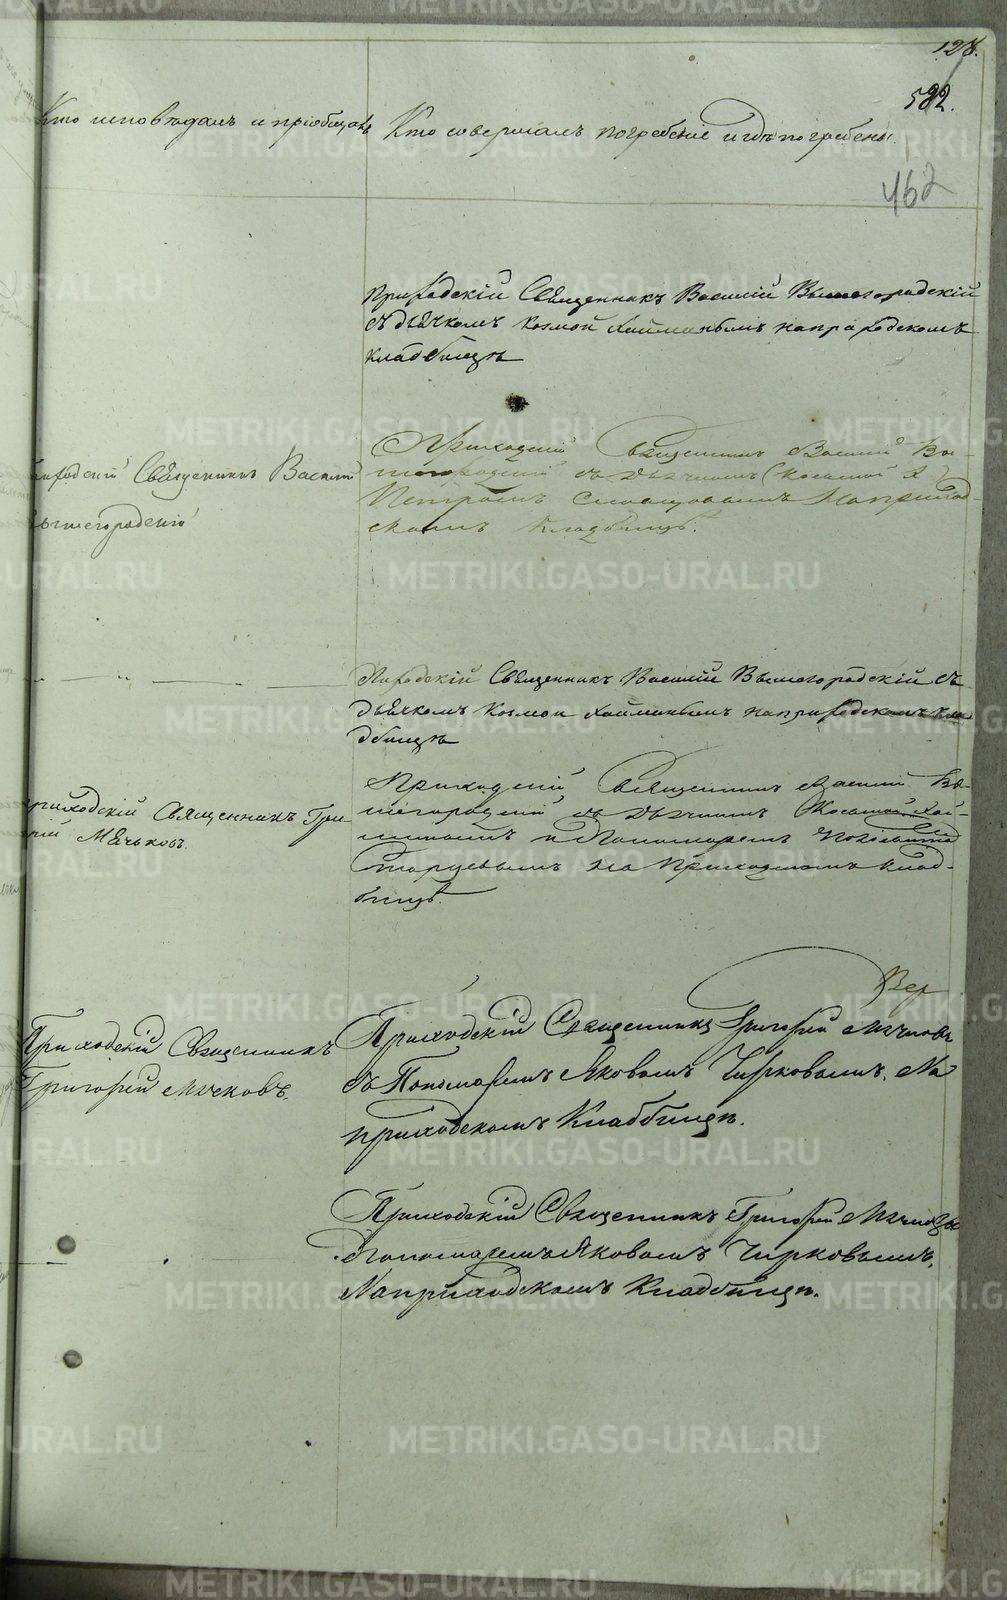 128.
522.
Кто исповѣдалъ и пріобщалъ
Кто совершалъ погребеніе и гдѣ погребены
462
Приходскій Священникъ Василій Вышегородскій
съ дьячкомъ Козмой Хайминымъ на приходскомъ
кладбищѣ
Священникъ Василій
Вышегородскій
Приходскій Священникъ Василій Вы-
шегородскій съ дьячкомъ
Петромъ на приход-
скомъ кладбищѣ.
Приходскій Священникъ Василій Вышегородскій съ
дьячкомъ Козмой Хайминымъ на приходскомъ кла
дбищѣ
Приходскій Священникъ Гри
рій Мѣчьковъ.
Приходскій Священникъ Василій Вы-
шегородскій съ дьячкомъ Козьмой Хай-
минымъ и Пономаремъ
Старцевымъ на Приходскомъ клад-
бищѣ.
Приходскій Священникъ
Григорій Мѣчковъ.
Приходскій Священникъ Григорій Мѣчковъ
съ Пономаремъ Яковомъ Чирковымъ. На
приходскомъ Кладбищѣ.
Приходскій Священникъ Григорій Мѣчковъ
Пономаремъ Яковомъ Чирковымъ.
На приходскомъ Кладбищѣ.
METRIKI.GASO-URAL.RU